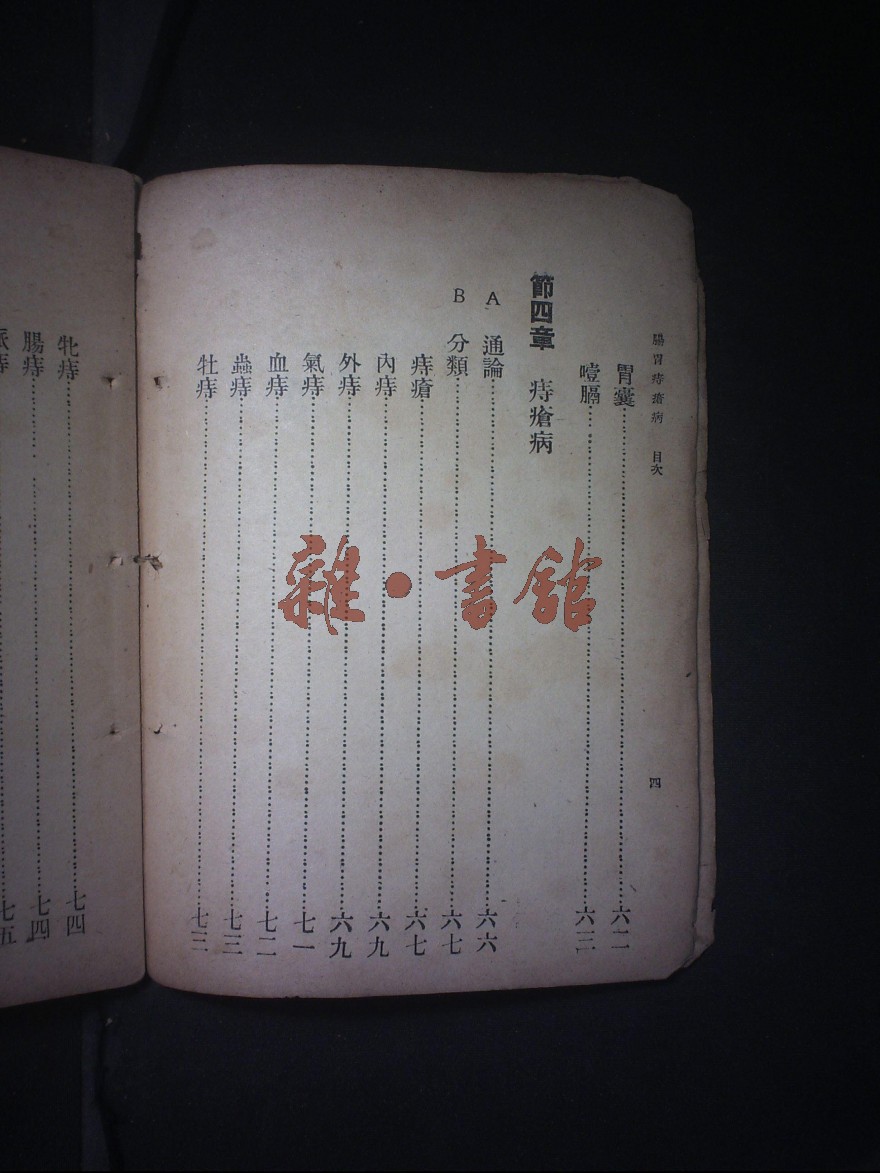 腸胃痔瘡病 目次 四
胃囊 六二
噎膈 六三
節四章 痔瘡病
A 通論 六六
B 分類 六七
痔瘡 六七
內痔 六九
外痔 六九
氣痔 七一
血痔 七二
蟲痔 七三
牡痔 七三
牝痔 七四
腸痔 七四
痔 七五
雜·書館